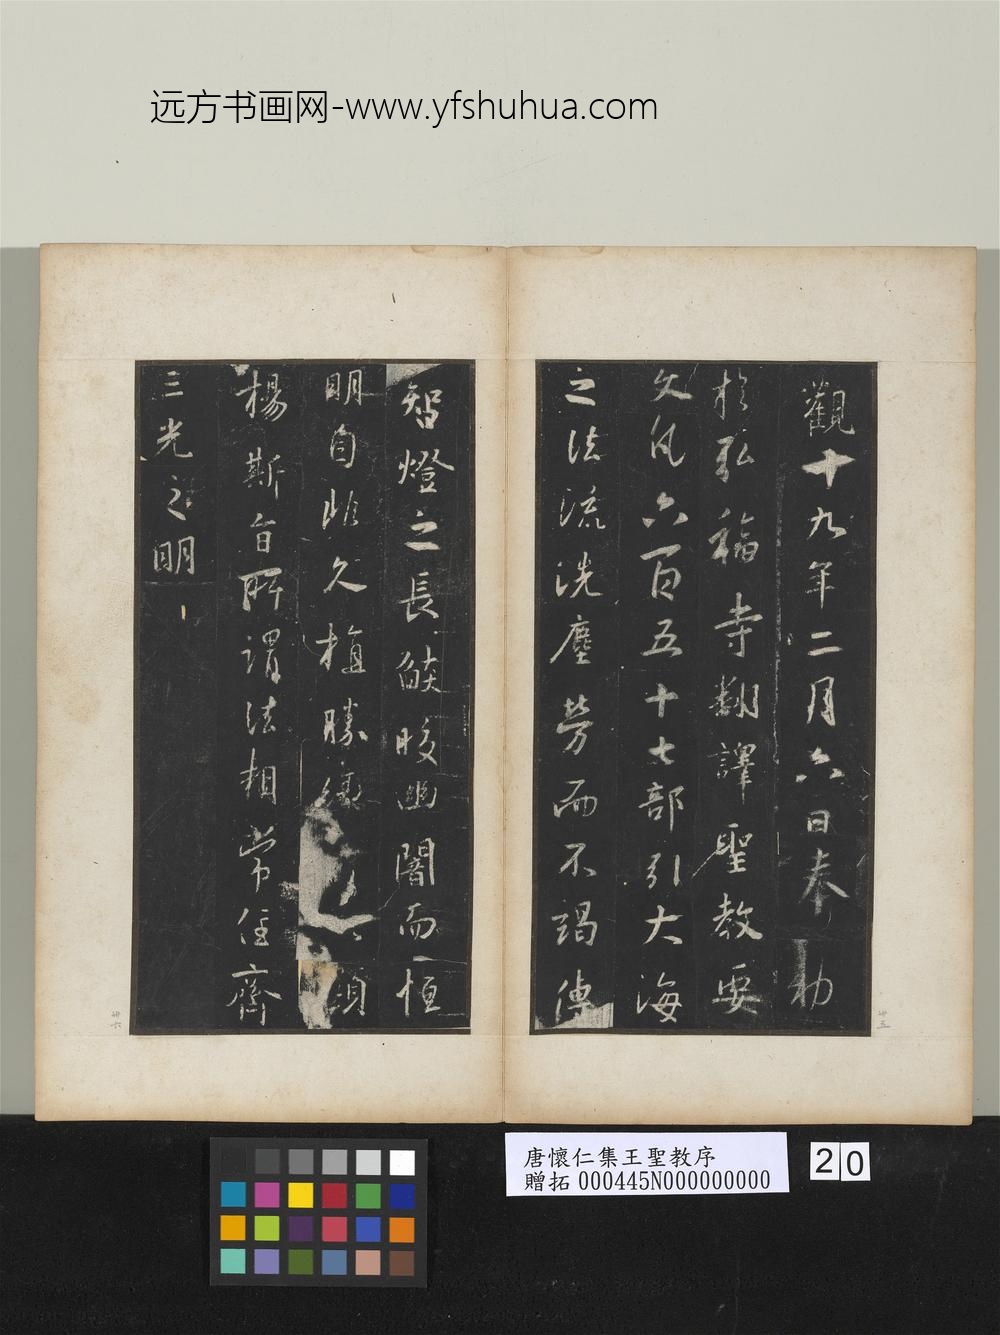 远方书画网-www.yfshuhua.com
觀十九年二月六日奉勑
於弘福寺翻譯聖教要
文凡六百五十七部引大海
之法流洗塵勞而不竭傳
智燈之長焰皎幽闇而恒
明自非久植勝緣 須
楊斯旨所謂法相常住齊
三光之明
卅五
卅六
唐懷仁集王聖教序
贈拓 000445N000000000
20